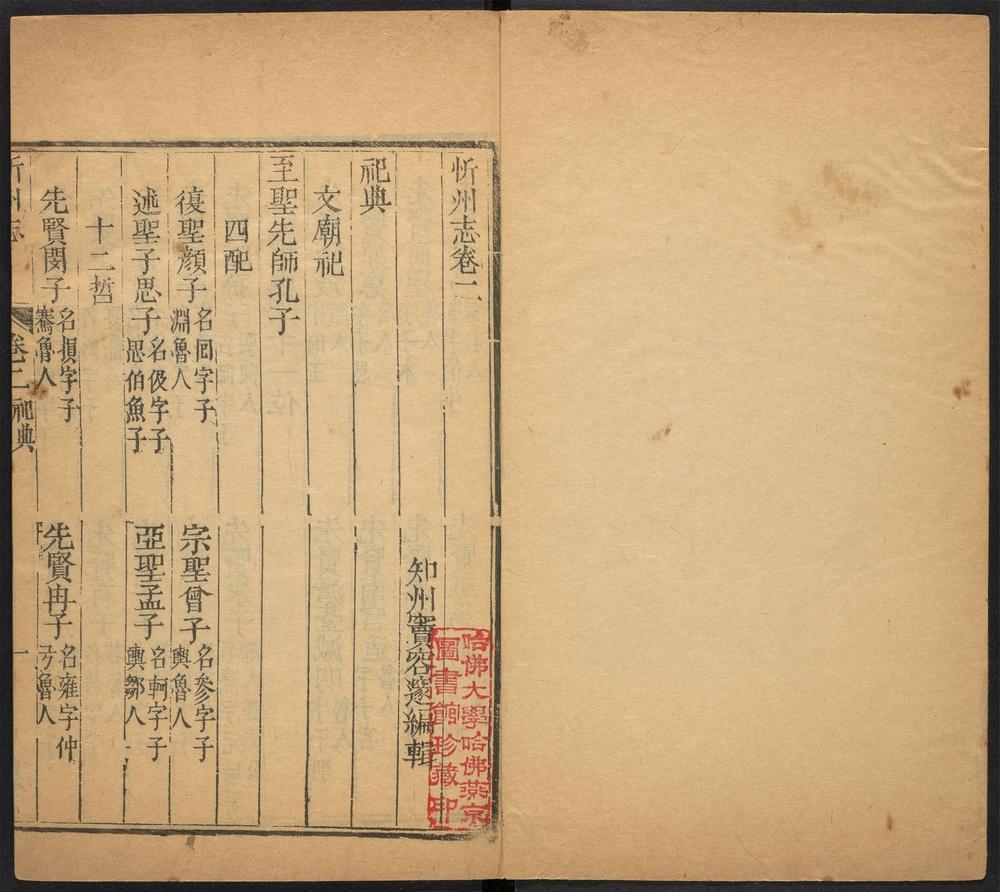 忻州志卷二
知州竇容邃編輯
祀典
文廟祀
至聖先師孔子
四配
復聖顏子 名回字子淵魯人
宗聖曾子 名參字子輿魯人
述聖子思子 名伋字子思伯魚子
亞聖孟子 名軻字子輿鄒人
十二哲
先賢閔子 名損字子騫魯人
先賢冉子 名雍字仲弓魯人
忻州志 卷二 祀典 一
哈佛大學哈佛燕京圖書館珍藏印